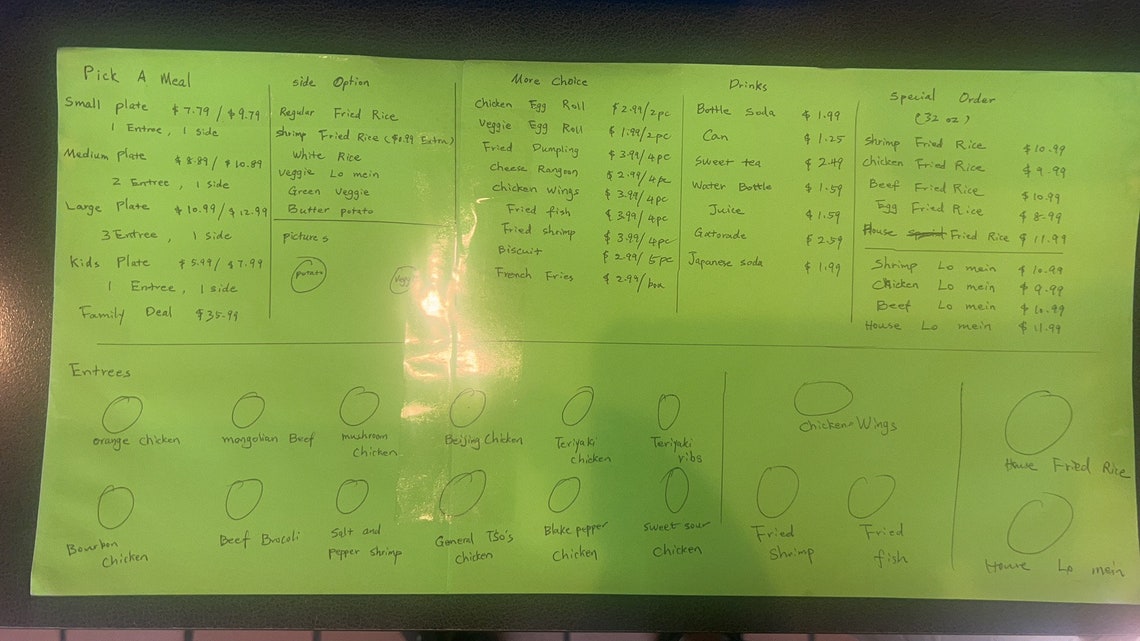 Pick A Meal
Small plate $7.79/$9.79
1 Entree, 1 side
Medium plate $8.89/$10.89
2 Entree, 1 side
Large Plate $10.99/$12.99
3 Entree, 1 side
Kids Plate $5.99/$7.99
1 Entree, 1 side
Family Deal $35.99
side Option
Regular Fried Rice
shrimp Fried Rice ($0.99 Extra)
White Rice
Veggie Lo mein
Green Veggie
Butter potato
pictures
potato
More Choice
Chicken Egg Roll $2.99/2pc
Veggie Egg Roll $1.99/2pc
Fried Dumpling $3.99/4pc
Cheese Rangoon $2.99/4pc
Chicken Wings $3.99/4pc
Fried fish $3.99/4pc
Fried shrimp $3.99/4pc
Biscuit $2.99/5pc
French Fries $2.99/box
Drinks
Bottle soda $1.99
Can $1.25
Sweet tea $2.49
Water Bottle $1.59
Juice $1.59
Gatorade $2.59
Japanese soda $1.99
Special Order
(32 oz)
Shrimp Fried Rice $10.99
Chicken Fried Rice $9.99
Beef Fried Rice $10.99
Egg Fried Rice $8.99
House Fried Rice $11.99
Shrimp Lo mein $10.99
Chicken Lo mein $9.99
Beef Lo mein $10.99
House Lo mein $11.99
Entrees
orange chicken
mongolian Beef
mushroom
Chicken
Beijing Chicken
Teriyaki
chicken
Teriyaki
ribs
Bourbon
Chicken
Beef Brocoli
Salt and
pepper shrimp
General TSo's
Chicken
Blake pepper
Chicken
sweet sour
Chicken
Chicken Wings
Fried
Shrimp
Fried
fish
House Fried Rice
House Lo mein